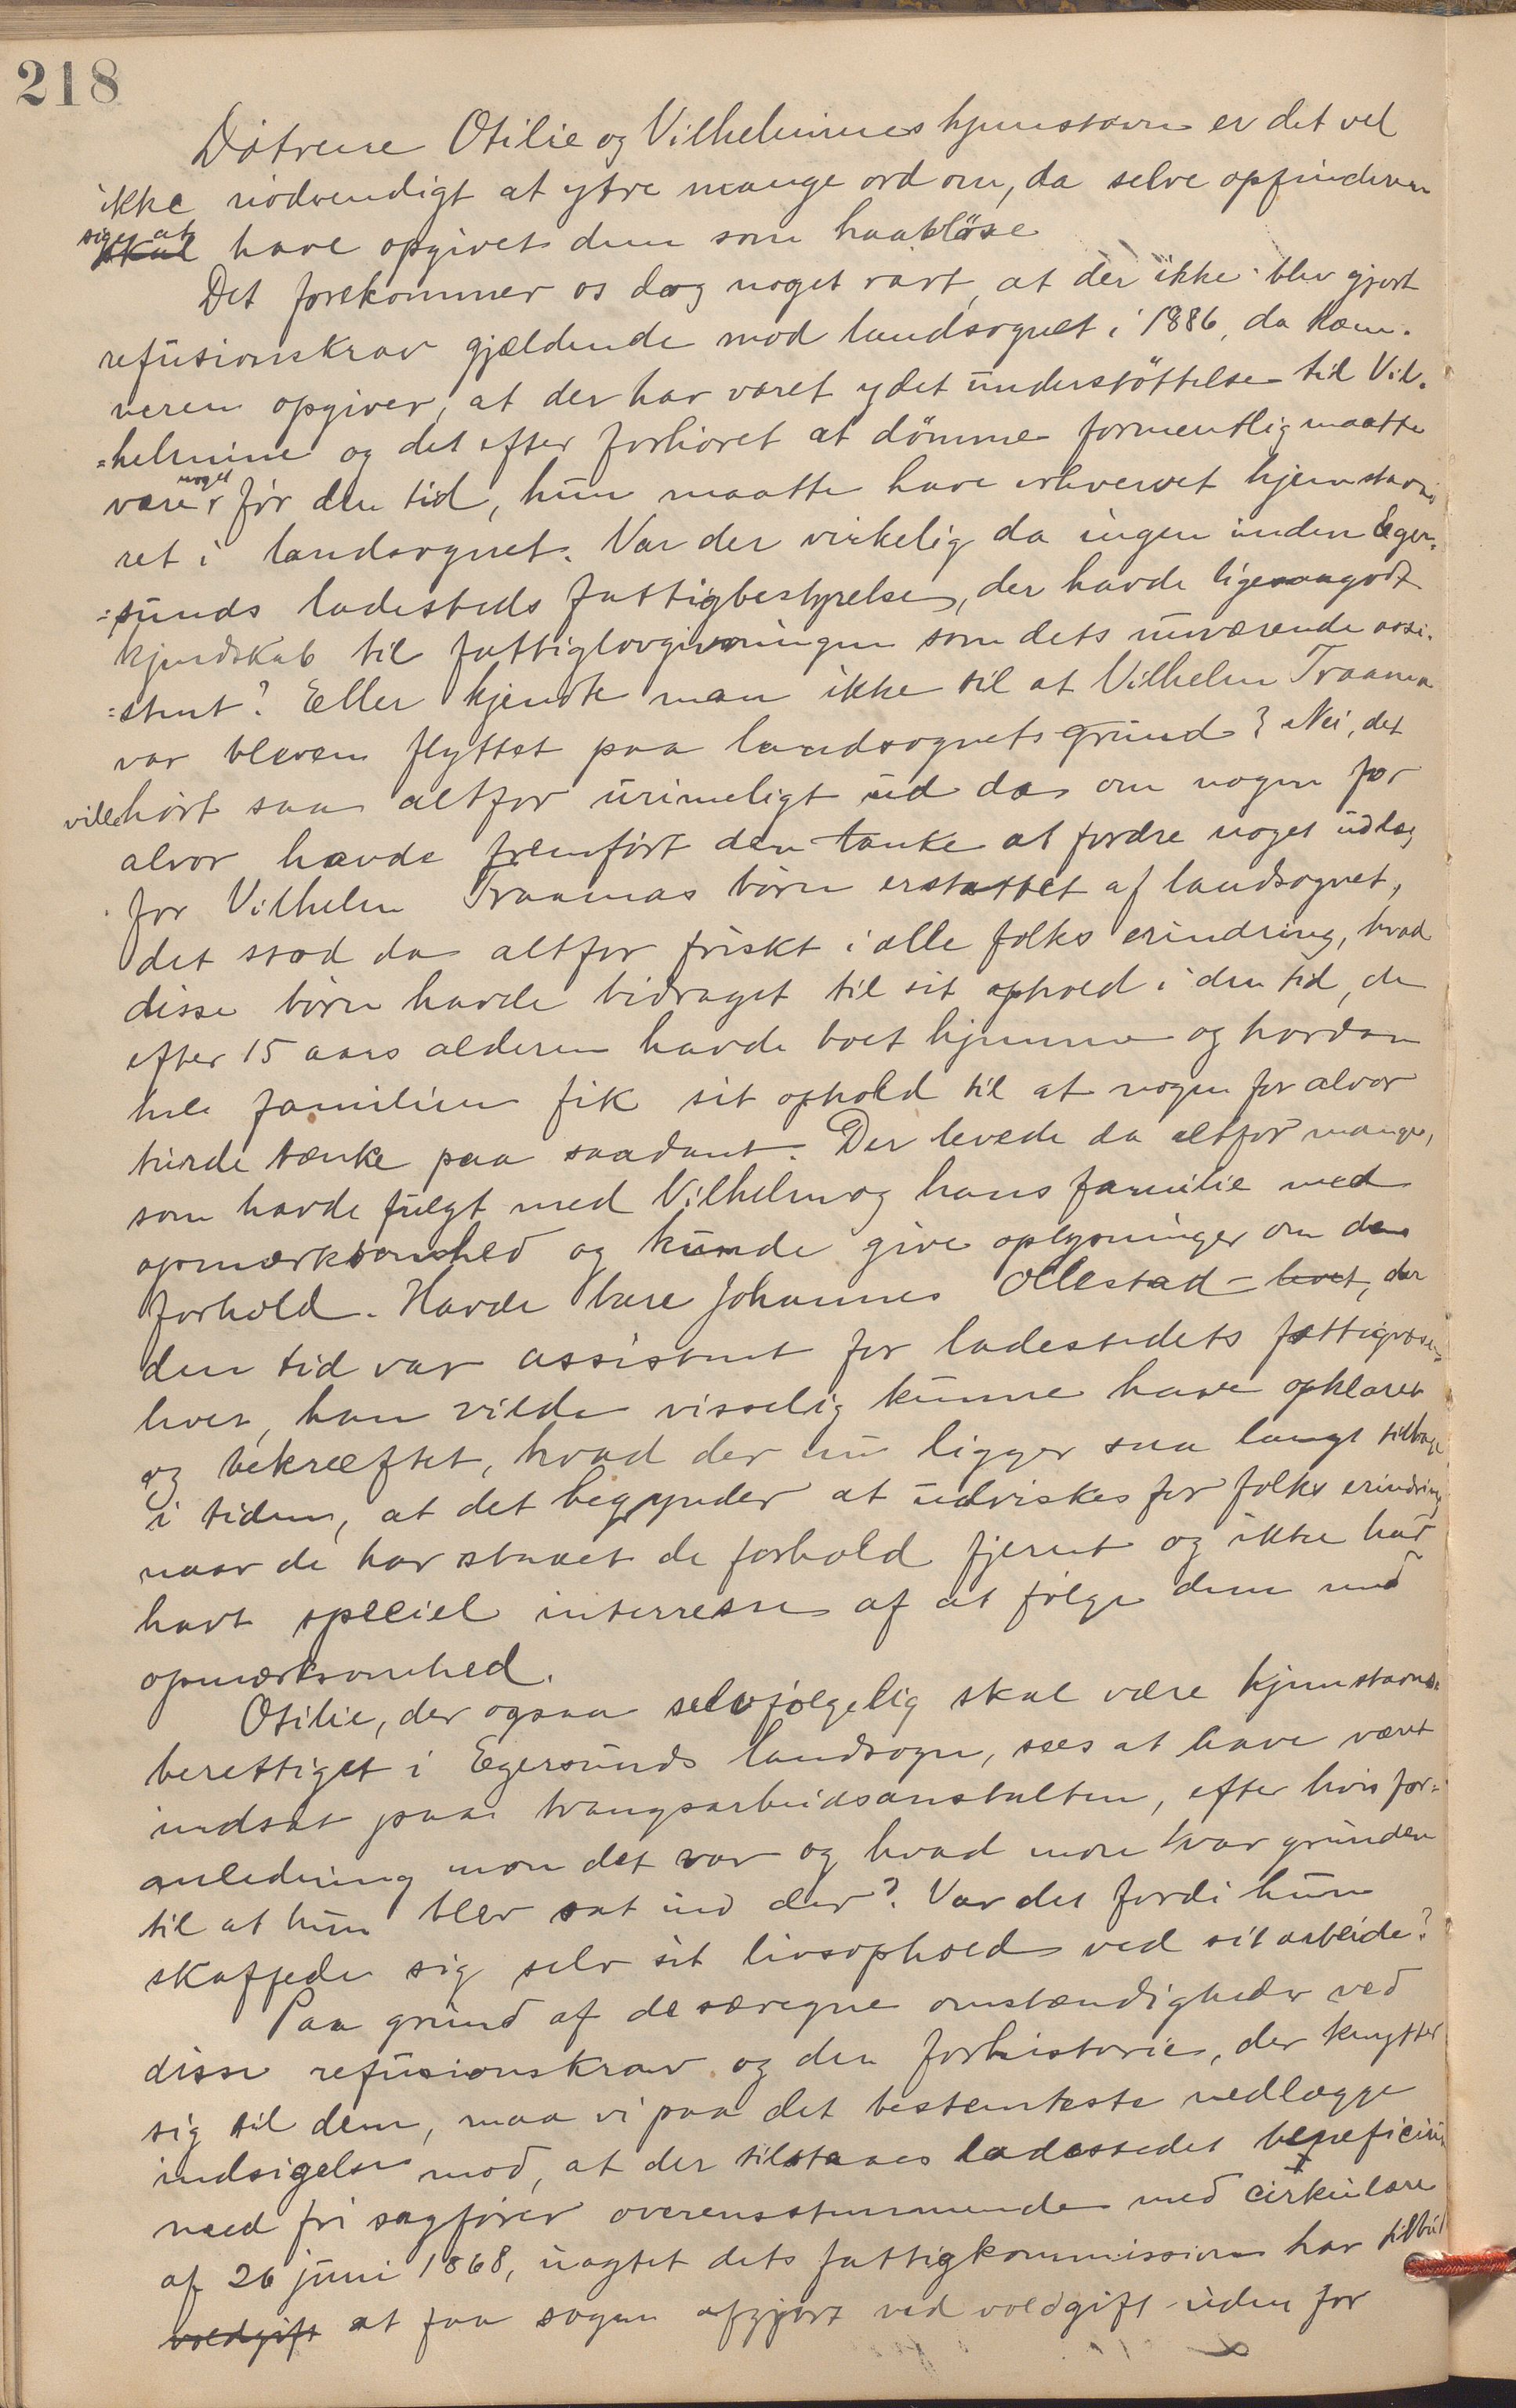 218
Døtrene Otilie og Vilhelmines hjemstavn er det vel
ikke nödvendigt at ytre mange ord om, da selve opfinderen
siges at
skal have opgivet dem som haablöse
Det forekommer os dog noget rart, at der ikke blev gjort
refusionskrav gjældende mod landsognet i 1886, da kæm-
neren opgiver, at der har været ydet understöttelse til Vil-
=helmine og det efter forhöret at dömme formentlig maatte
noget
være før den tid, hun maatte have erhvervet hjemstavns
ret i landsognet. Var der virkelig da ingen inden Eger-
=sunds ladesteds fattigbestyrelse, der havde ligesaagodt
kjendskab til fattiglovgivningen som dets nuværende assi-
=stent? Eller kjendte man ikke til at Vilhelm Traama
var bleven flyttet paa landsognets grund? Nei, det
ville hørt saa altfor urimeligt ud da om nogen for
alvor havde fremført den tanke at fordre noget udlæg
for Vilhelm Traamas børn erstattet af landsognet,
det stod da altfor friskt i alle folks erindring, hvad
disse børn havde bidraget til sit ophold i den tid, de
efter 15 aars alderen havde boet hjemme og hvordan
hele familien fik sit ophold til at nogen for alvor
turde tænke paa saadant. Der levede da altfor mange,
som havde fulgt med Vilhelm og hans familie med
opmærksomhed og kunde give oplysninger om den
forhold. Havde bare Johannes Ollestad - levet, der
den tid var assistent for ladestedets fattigvæsen
levet, han vilde visselig kunne have opklaret
og bekræftet, hvad der nu ligger saa langt tilbage
i tiden, at det begynder at udviskes for folks erindring
naar de har staaet de forhold fjernt og ikke har
havt speciel interresse af at følge dem med
opmærksomhed.
Otilie, der ogsaa selvfølgelig skal være hjemstavns-
berettiget i Egersunds landsogn, sees at have været
indsat paa tvangsarbeidsanstalten, efter hvis for-
anledning mon det var og hvad mon var grunden
til at hun blev sat ind der? Var det fordi hun
skaffede sig selv sit livsophold ved sit arbeide?
Paa grund af de særegne omstændigheder ved
disse refusionskrav og den forhistorie, der knytter
sig til dem, maa vi paa det bestemteste nedlægge
indsigelse mod, at der tilstaaes ladestedet beneficium
med fri sagfører overensstemmende med cirkulære
af 26 juni 1868, uagtet dets fattigkommission har tilbudt
voldgift at faa sagen afgjort ved voldgift uden for